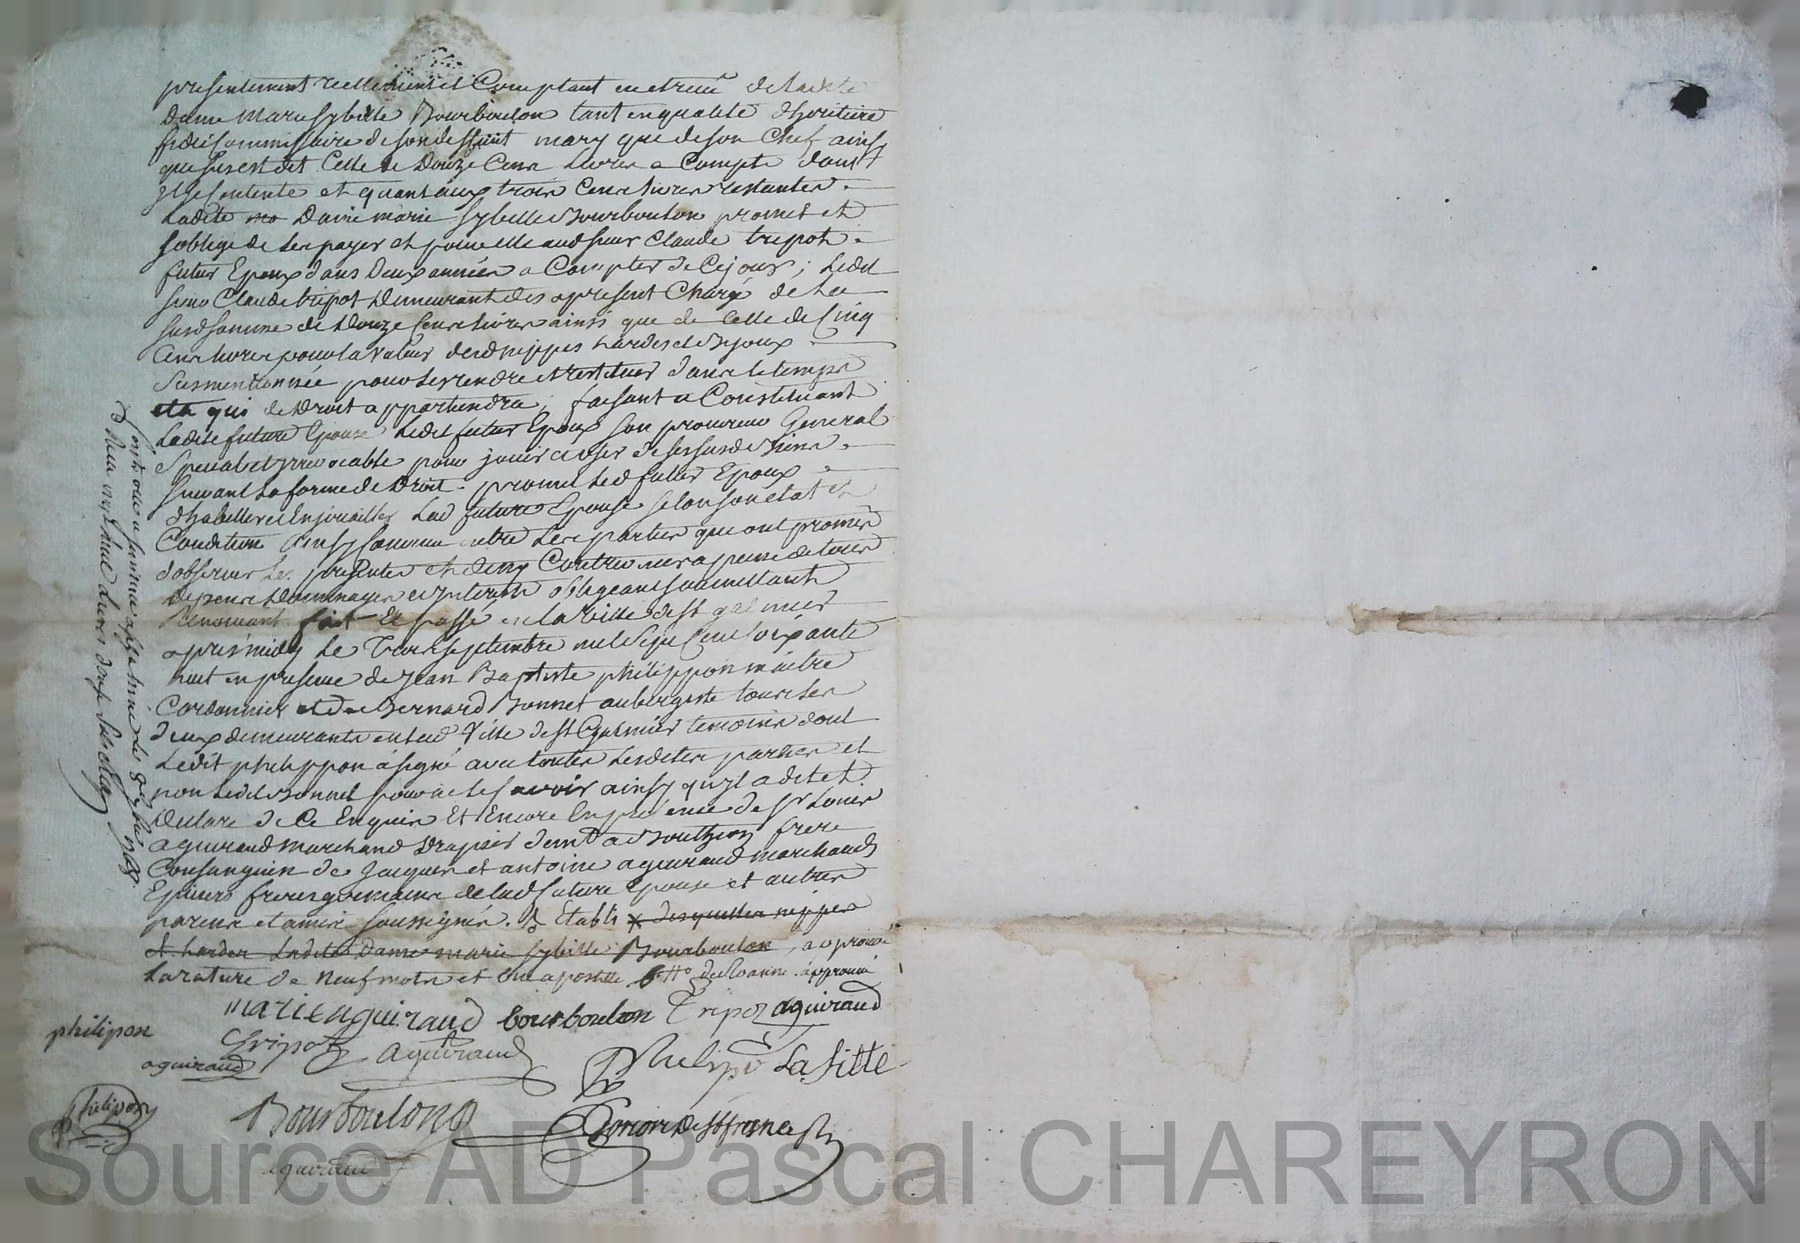 presentement reellement et Comptant de ladite
Dame Marie Sybille Bourboulon tant en qualité d'heritiere
fideicommissaire de son deffunt mary que de son Chef ainsy
que sus est dit Celle de Douze Cens Livres a Compte dont
Il se Contente et quant aux trois Cens livres restantes
Ladite ma Dame marie Sybille Bourboulon promet et
s'oblige de les payer et pour elle aud sieur Claude tripot
futur Epoux dans Deux années a Compter de Ce jour; Ledit
sieur Claude tripot Demeurant des apresent Chargé de la
susd somme de Douze Cens livres ainsi que de Celle de Cinq
Cens livres pour la valeur desd nippes hardes et Bijoux
susmentionnée pour les rendre et restituer dans le temps
et a qui de Droit appartiendra; faisant et Constituant
Ladite future Epouse Ledit futur Epoux son procureur General
Special et irrevocable pour jouir et user de ses susd Biens
suivant la forme de Droit. promet Led futur Epoux
d'habiller et Enjouailler Lad future Epouse selon son état et
Condition ainsy Convenu entre Les parties qui ont promis
d'observer Les presentes et de n'y Contrevenir a peine de tous
depens Dommages et Interests obligeant soumettant
Renonçant fait et passé en la ville de st galmier
apres midy Le Trois septembre mil sept Cent soixante
huit en presence de Jean Baptiste philippon maitre
Cordonnier et de Bernard Bonnet aubergiste tous les
deux demeurants en lad Ville de st Galmier temoins dont
Ledit philippon a signé avec toutes Lesdites parties et
non Ledit Bonnet pour ne le savoir ainsy qu'il a dit et
déclaré de Ce Enquis Et Encore En presence de sr Louis
aguiraud marchand Drapier demt a frere
Consanguin de Jacques et antoine aguiraud marchands
Epiciers freres germains de lad future Epouse et autres
parens et amis soussignés. Etabli x desquelles nippes
et hardes Ladite Dame marie sybille Bourboulon, approuvé
La rature de neuf mots et une apostille approuvé
marie aguiraud bourboulon Tripoz aguiraud
philipon
Gripoz aguiraud
aguiraud
Philipon La fitte
Philipon
Bourboulon
aguiraud
Source AD Pascal CHAREYRON